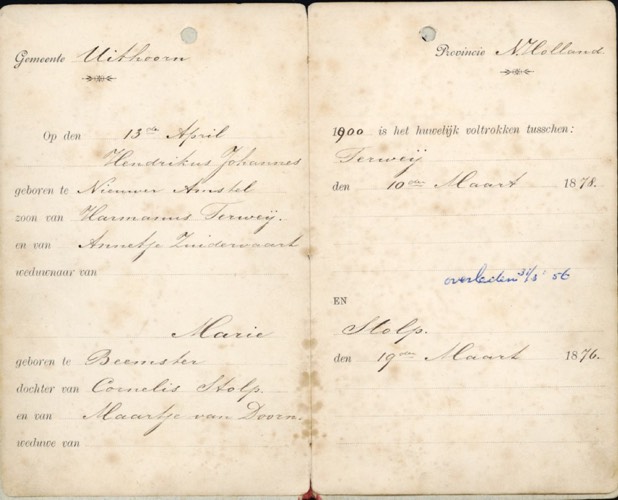 Gemeente Uithoorn
Provincie N. Holland.
Op den 13den April 1900 is het huwelijk voltrokken tusschen:
Hendrikus Johannes Terweij
geboren te Nieuwer Amstel den 10den Maart 1878.
zoon van Harmanus Terweij.
en van Annetje Zuidervaart
weduwnaar van
overleden 31/3 '56
EN
Marie Stolp.
geboren te Beemster den 19den Maart 1876.
dochter van Cornelis Stolp.
en van Maartje van Doorn.
weduwe van